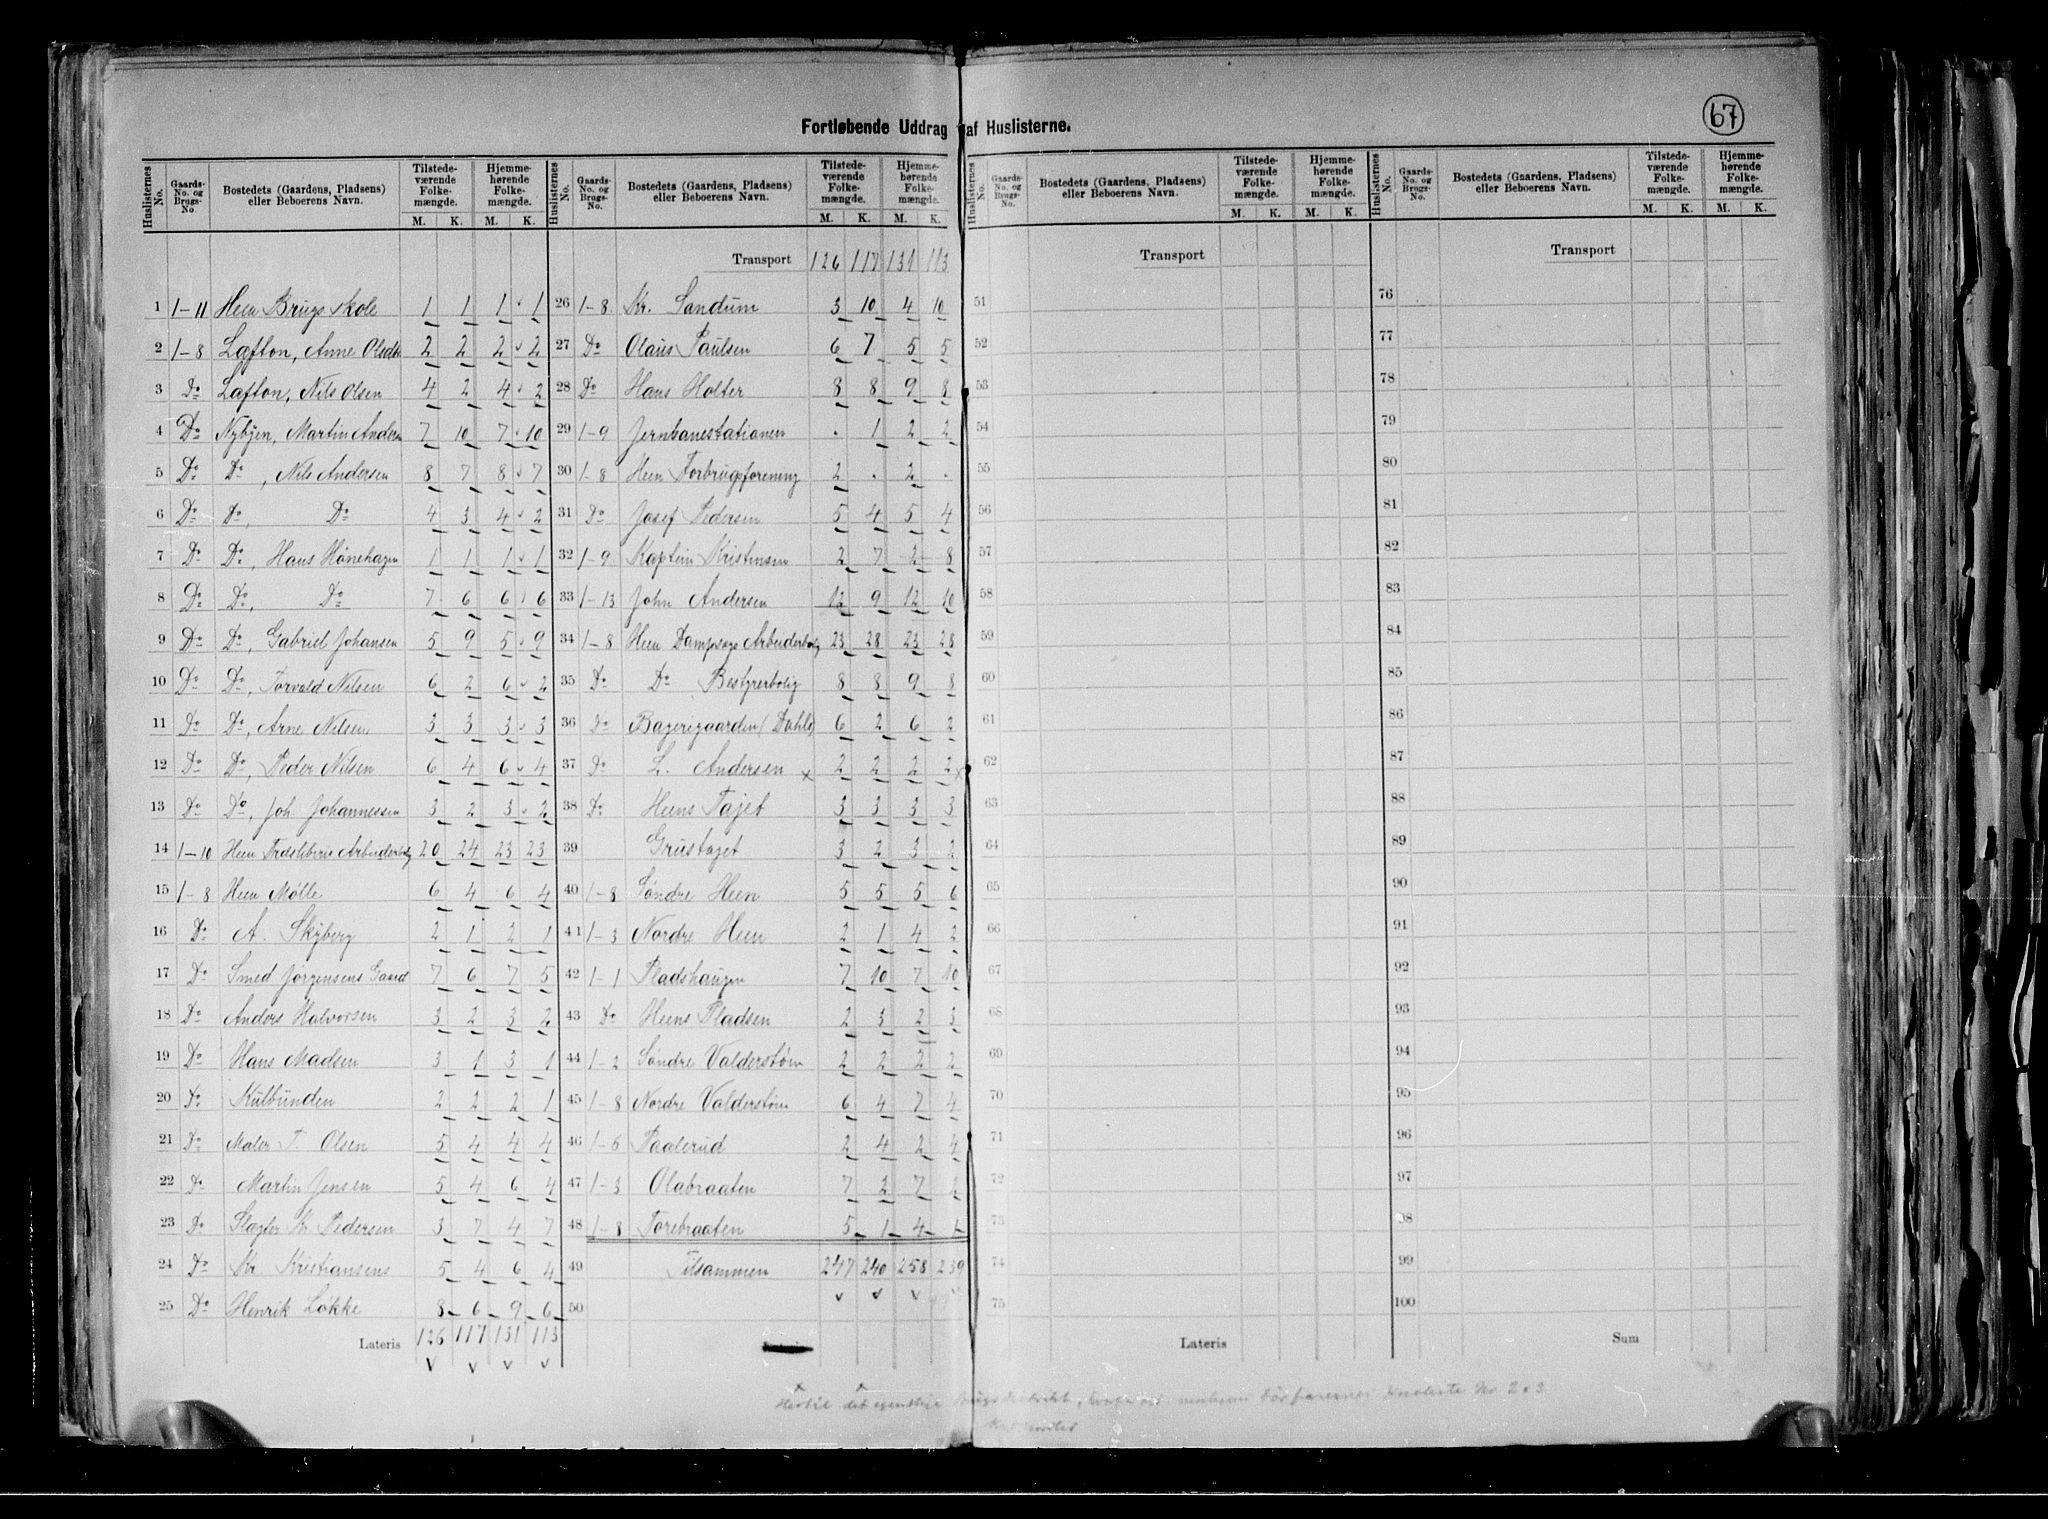 67
Fortløbende Uddrag af Huslisterne.
Huslisternes No. | Gaards-No. og Brugs-No. | Bostedets (Gaardens, Pladsens) eller Beboerens Navn. | Tilstedeværende Folkemængde. M. K. | Hjemmehørende Folkemængde. M. K.
1 1-11 Heen Brugs Skole 1 1 1 1
2 1-8 Lafton, Anne Olsdtr 2 2 2 2
3 Do Lafton, Nils Olsen 4 2 4 2
4 Do Nybyen, Martin Anders 7 10 7 10
5 Do Do, Nils Andersen 8 7 8 7
6 Do Do, Do 4 3 4 2
7 Do Do, Hans Hønehagen 1 1 1 1
8 Do Do, Do 7 6 6 6
9 Do Do, Gabriel Johansen 5 9 5 9
10 Do Do, Torvald Nilsen 6 2 6 2
11 Do Do, Arne Nilsen 3 3 3 3
12 Do Do, Peder Nilsen 6 4 6 4
13 Do Do, Joh. Johannessen 3 2 3 2
14 1-10 Heen Træsliberis Arbeiderbolig 20 24 23 23
15 1-8 Heen Mølle 6 4 6 4
16 Do A. Skyberg 2 1 2 1
17 Do Smed Jørgensens Gaard 7 6 7 5
18 Do Anders Halvorsen 3 2 3 2
19 Do Hans Madsen 3 1 3 1
20 Do Kulbunden 2 2 2 1
21 Do Maler T. Olsen 5 4 4 4
22 Do Martin Jensen 5 4 6 4
23 Do Slagter Kr. Pedersen 3 7 4 7
24 Do Kr. Kristiansens 5 4 6 4
25 Do Henrik Løkke 8 6 9 6
Lateris 126 117 131 113
Huslisternes No. | Gaards-No. og Brugs-No. | Bostedets (Gaardens, Pladsens) eller Beboerens Navn. | Tilstedeværende Folkemængde. M. K. | Hjemmehørende Folkemængde. M. K.
Transport 126 117 131 113
26 1-8 Kr. Sandum 3 10 4 10
27 Do Olaus Paulsen 6 7 5 5
28 Do Hans Holter 8 8 9 8
29 1-9 Jernbanestationen . 1 2 2
30 1-8 Heen Forbrugsforening 2 . 2 .
31 Do Josef Pedersen 5 4 5 4
32 1-9 Kaptein Kristensen 2 7 2 8
33 1-13 John Andersen 12 9 12 10
34 1-8 Heen Dampsags Arbeiderbolig 23 28 23 28
35 Do Do Bestyrerbolig 8 8 9 8
36 Do Bagerigaarden (Dahls) 6 2 6 2
37 Do L. Andersen x 2 2 2 2 x
38 Do Heens Tajet 3 3 3 3
39 Grustaget 3 2 3 2
40 1-8 Søndre Heen 5 5 5 6
41 1-3 Nordre Heen 2 1 4 2
42 1-1 Pladshaugen 7 10 7 10
43 Do Heens Pladsen 2 3 2 3
44 1-2 Søndre Valderstøm 2 2 2 2
45 1-8 Nordre Valderstøm 6 4 7 4
46 1-6 Paalerud 2 4 2 4
47 1-3 Olabraaten 7 2 7 2
48 1-8 Torebraaten 5 1 4 1
49 Tilsammen 247 240 258 239
50
Huslisternes No. | Gaards-No. og Brugs-No. | Bostedets (Gaardens, Pladsens) eller Beboerens Navn. | Tilstedeværende Folkemængde. M. K. | Hjemmehørende Folkemængde. M. K.
Transport
51
52
53
54
55
56
57
58
59
60
61
62
63
64
65
66
67
68
69
70
71
72
73
74
75
Lateris
Huslisternes No. | Gaards-No. og Brugs-No. | Bostedets (Gaardens, Pladsens) eller Beboerens Navn. | Tilstedeværende Folkemængde. M. K. | Hjemmehørende Folkemængde. M. K.
Transport
76
77
78
79
80
81
82
83
84
85
86
87
88
89
90
91
92
93
94
95
96
97
98
99
100
Sum
Hertil det egentlige No 2 & 3